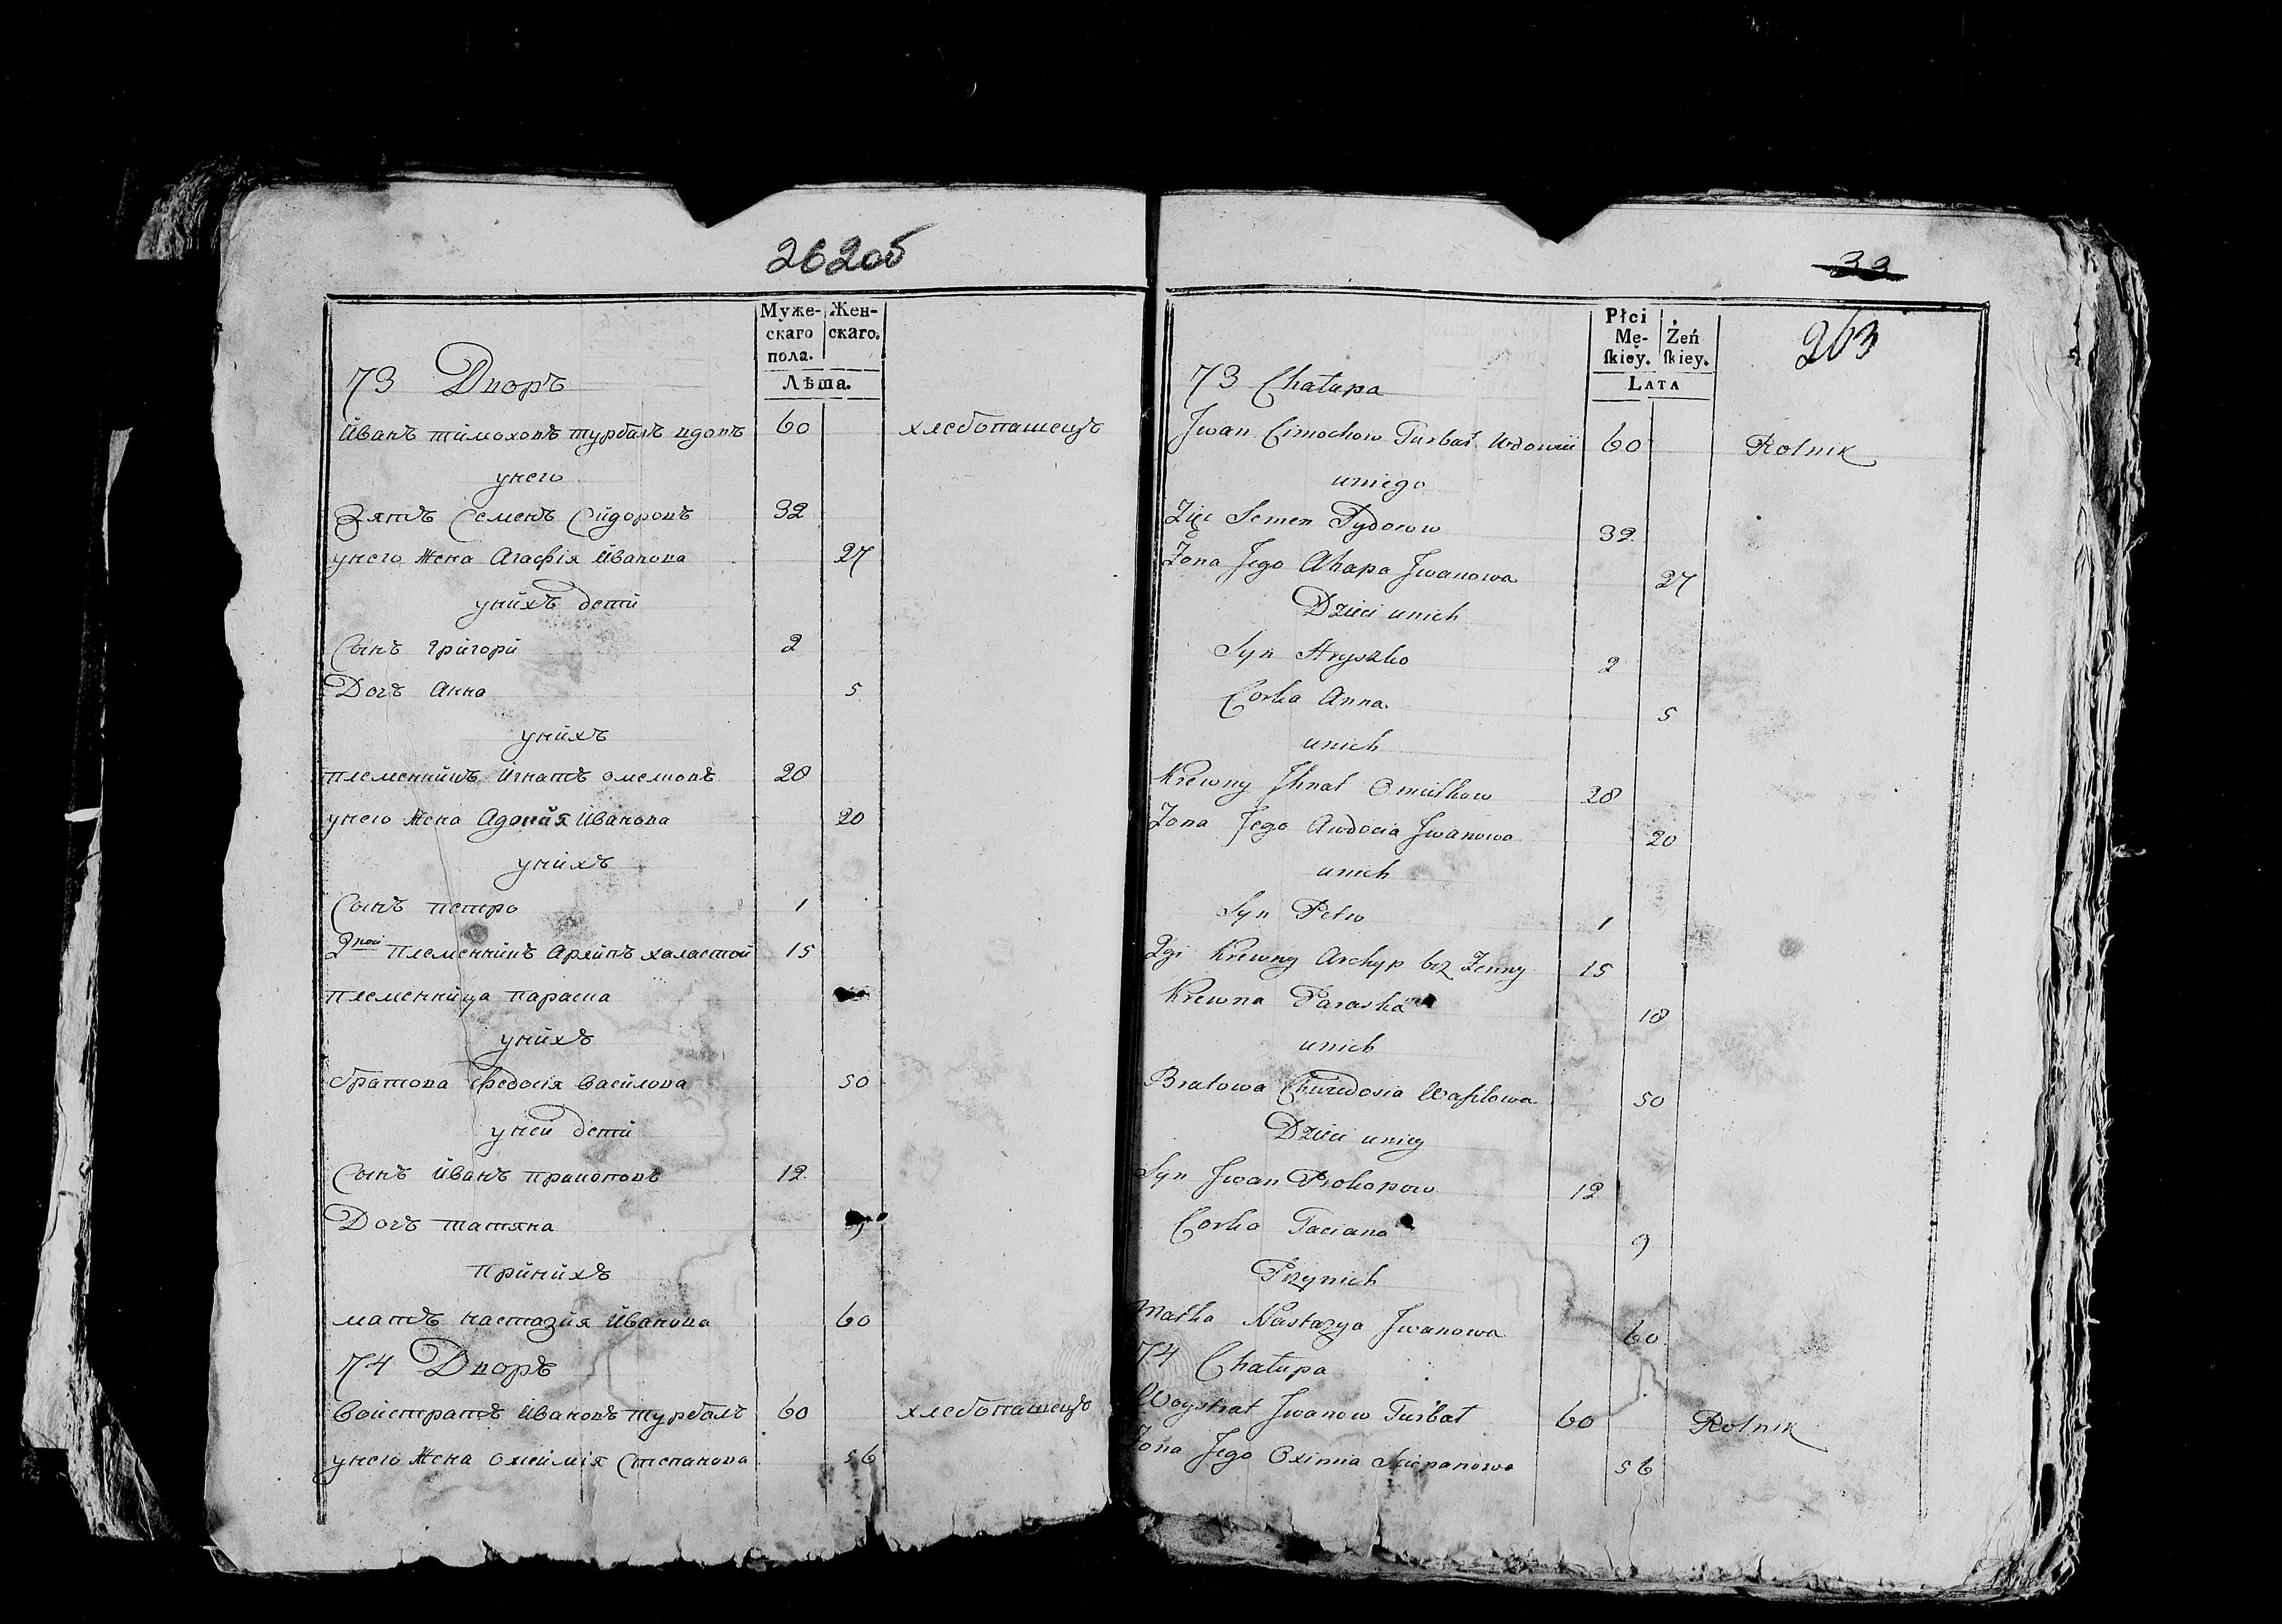 262об
Муже-
скаго
пола.
Жен-
скаго.
Лѣта.
73 Дворъ
Иванъ тимоховъ турбалъ вдовъ 60 хлебопашецъ
унего
Зять Семенъ Сидоровъ 32
унего жена Агафія Иванова 27
унихъ дети
Сынъ григори 2
Дочъ анна 5
унихъ
племенникъ игнатъ омелковъ 28
унего жена Адокия иванова 20
унихъ
Сынъ петро 1
2рой племенникъ Архипъ халастой 15
племенница параска
унихъ
братова федосія василова 50
уней дети
Сынъ иванъ пракоповъ 12
Дочъ татяна 9
принихъ
матъ настазия иванова 60
74 Дворъ
Войстратъ ивановъ турбалъ 60 хлебопашецъ
унего жена охеимія Степанова 56
33
263
Płci
Mę-
ſkiey.
Żeń
ſkiey.
LATA
73 Chałupa
Jwan Cimochow Turbał Wdowii 60 Rolnik
uniego
Zięc Semen Sydorow 32
Zona Jego Ahapa Jwanowa 27
Dzieci unich
Syn Hryszko 2
Corka Anna 5
unich
Krewny Jhnat Omielkow 28
Zona Jego Awdocia Jwanowa 20
unich
Syn Petro 1
2gi Krewny Archyp bez Zenny 15
Krewna Paraska 18
unich
Bratowa Chwiedosia Waſilowa 50
Dzieci uniey
Syn Jwan Prokopow 12
Corka Taciana 9
Przynich
Matka Nastazya Jwanowa 60
74 Chałupa
Woystrat Jwanow Turbał 60 Rolnik
Zona Jego Oximia Sciepanowa 56